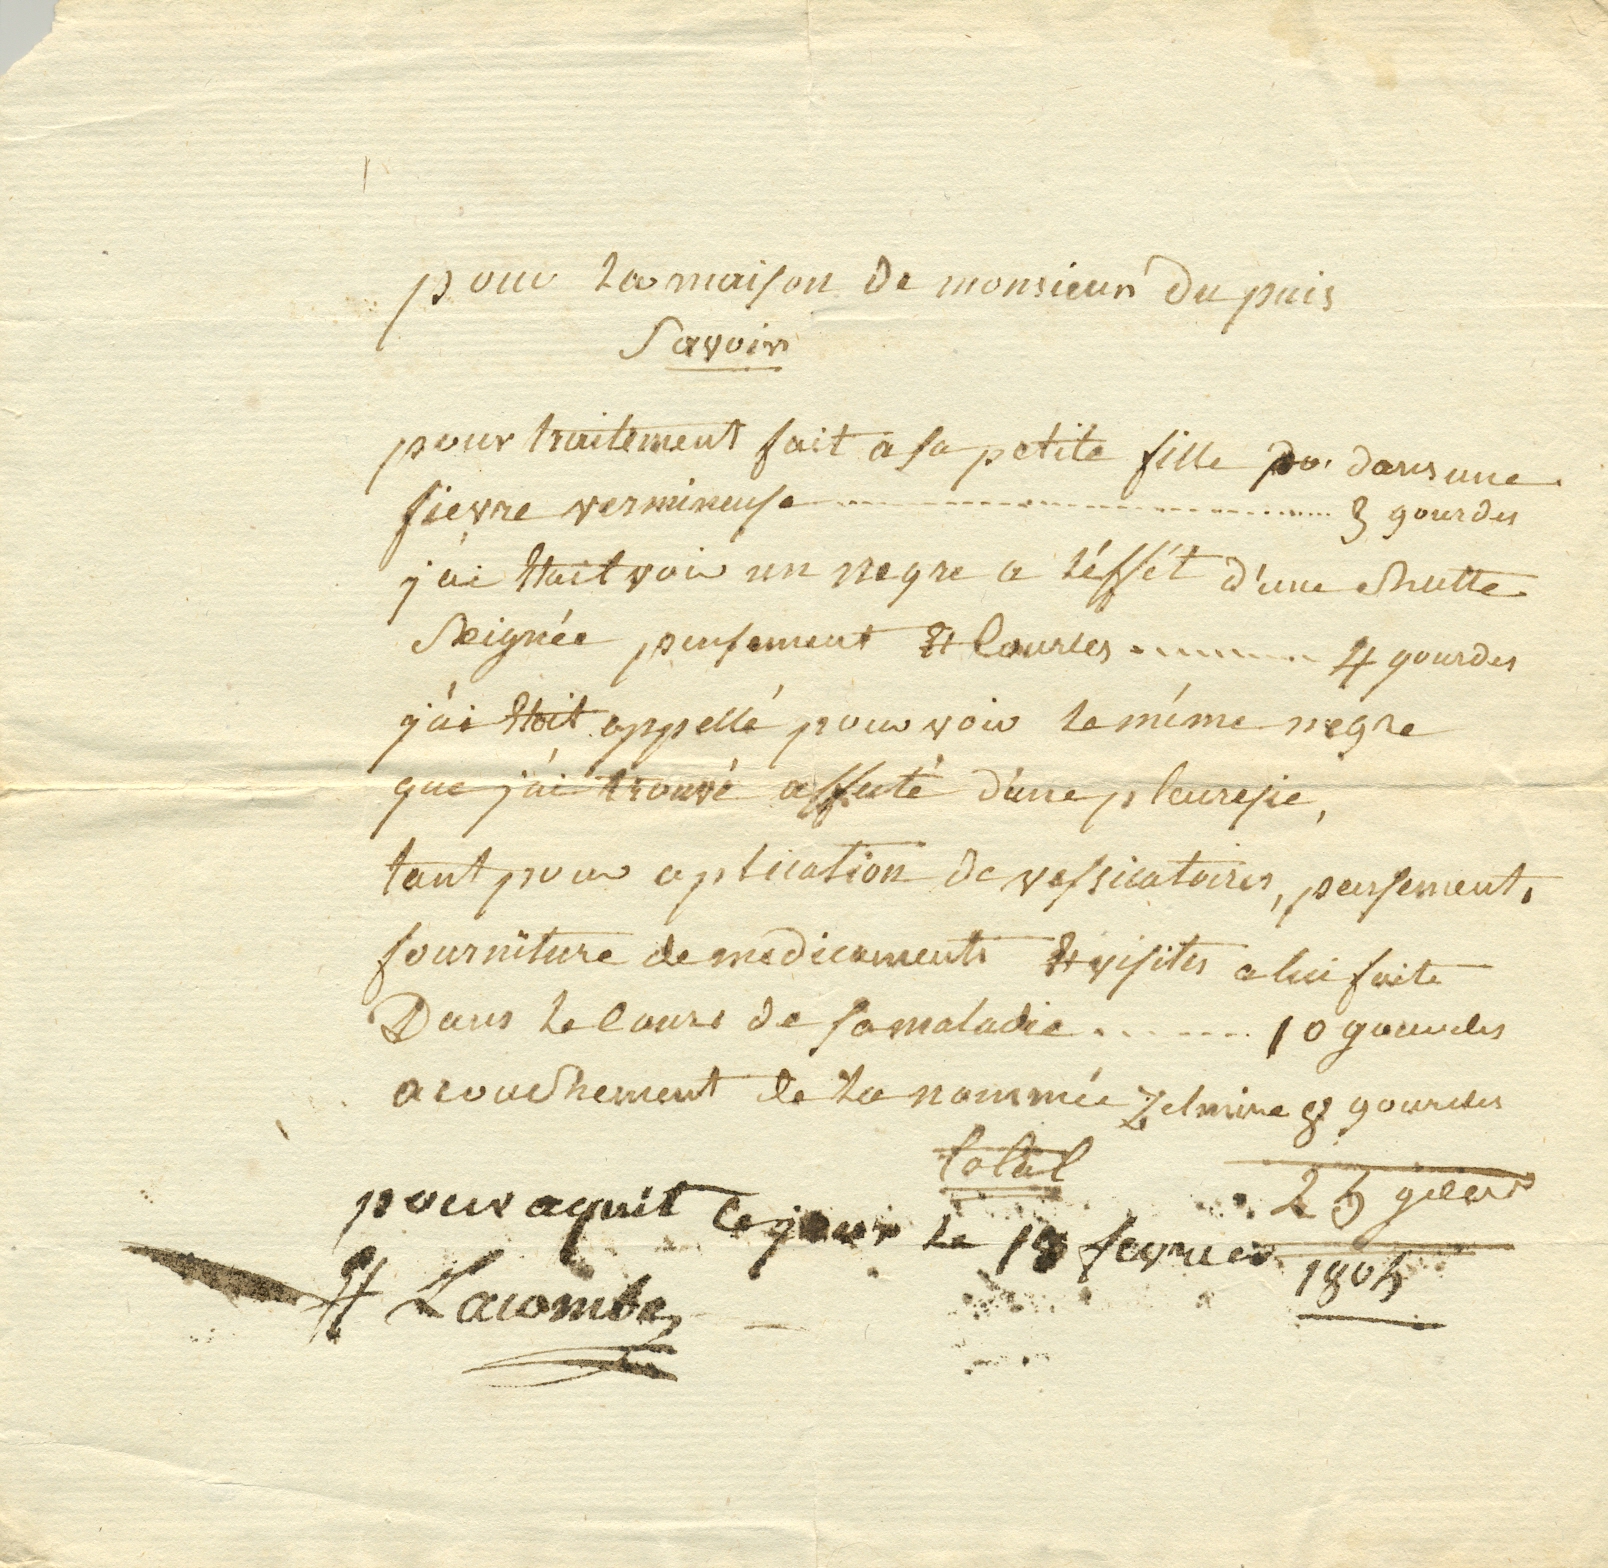 pour la maison de monsieur du puis
Savoir
pour traitement fait a sa petite fille dans une
fievre vermineuse 3 gourdes
j'ai était voir un negre a l'éffét d'une chutte
Seignée pensement et Courses 4 gourdes
j'ai etoit appellé pour voir le méme negre
que j'ai trouvé affecté d'une pleuresie,
tant pour aplication de vessicatoires, pensement,
fourniture de medicaments et visites a lui faite
Dans le Cours de sa maladie 10 gourdes
acouchement de la nommée Zelmire 8 gourdes
total 25 gour
pour aquit ce jour le 18 fevrier 1805
Lacombe